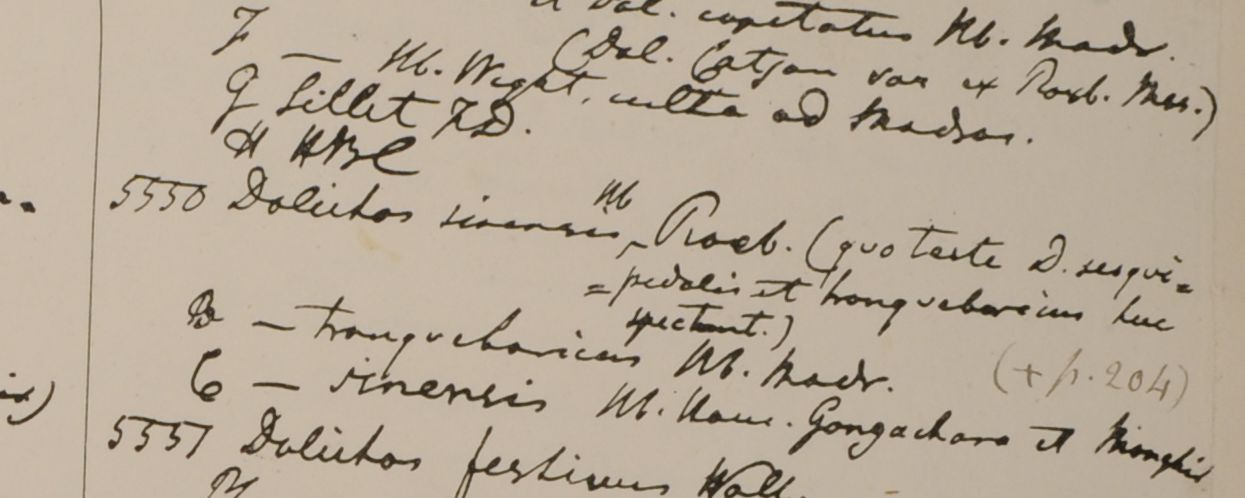 et Dol. capitatus Hb. Madr.
(Dol. Catjan var ex Roxb. Mss.)
F — Hb. Wight, culta ad Madras.
G Sillet F.D.
H HBC
5550 Dolichos sinensis Hb Roxb. (quo teste D. sesqui=
=pedalis et tranquebaricus huc
spectant.)
B — tranquebaricus Hb. Madr.
(+ p. 204)
C — sinensis Hb. Ham. Gongachora et Monghir
5551 Dolichos festivus Wall.